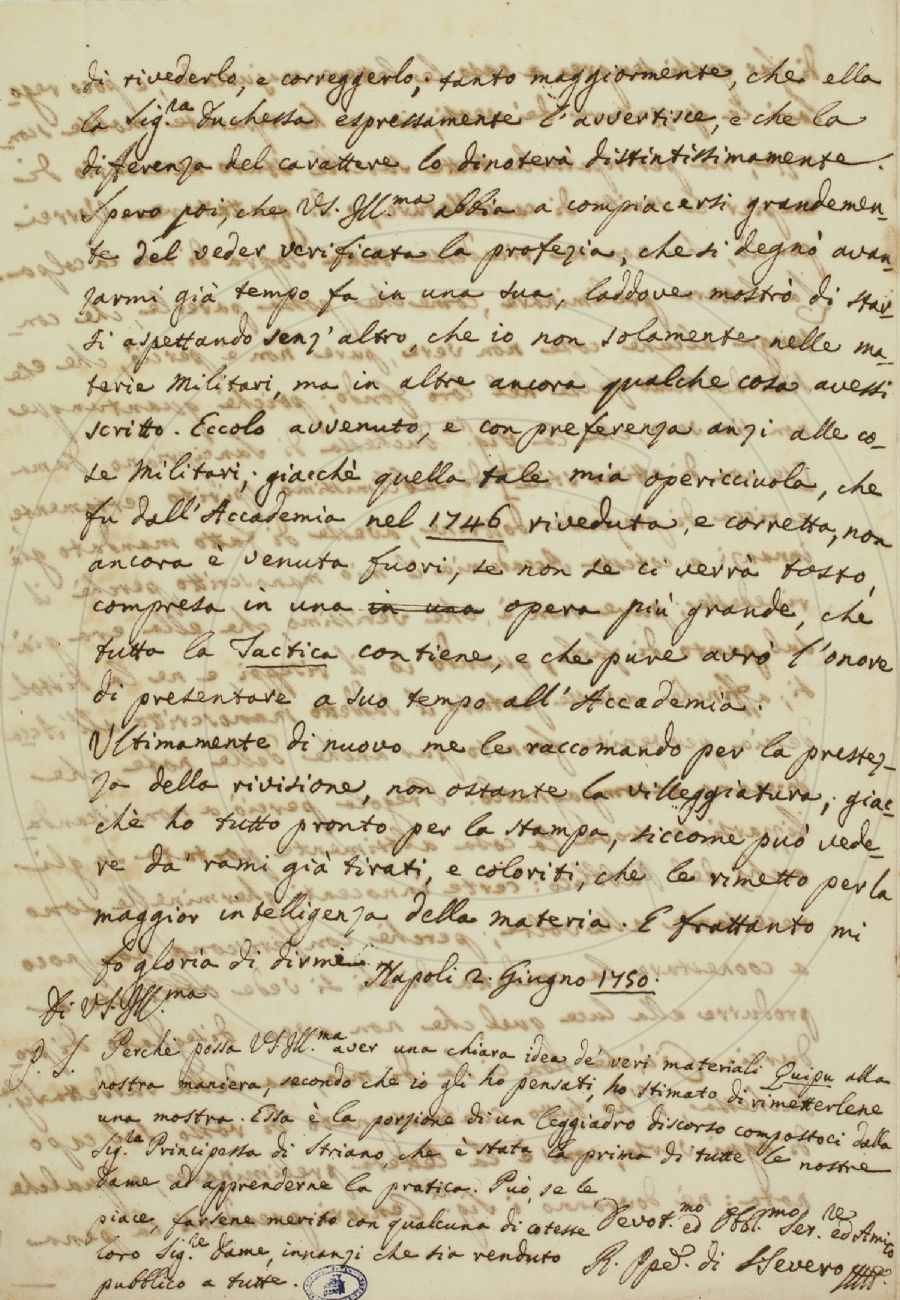 di rivederlo, e correggerlo; tanto maggiormente, che ella
la Sig.ra Duchessa espressamente l'avvertisce, e che la
differenza del carattere lo dinoterà distintissimamente.
Spero poi, che VS. Ill.ma abbia a compiacersi grandemen-
te del veder verificata la profezia, che si degnò avan-
zarmi già tempo fa in una sua, laddove mostrò di star-
si aspettando senz'altro, che io non solamente nelle ma-
terie Militari, ma in altre ancora qualche cosa avessi
scritto. Eccolo avvenuto, e con preferenza anzi alle co-
se Militari; giacchè quella tale mia opericciuola, che
fu dall'Accademia nel 1746 riveduta, e corretta, non
ancora è venuta fuori, se non se ci verrà tosto,
compresa in una in una opera più grande, che
tutta la Tactica contiene, e che pure avrò l'onore
di presentare a suo tempo all'Accademia.
Ultimamente di nuovo me le raccomando per la prestez-
za della rivisione, non ostante la villeggiatura; giac-
chè ho tutto pronto per la stampa, siccome può vede-
re da' rami già tirati, e coloriti, che le rimetto per la
maggior intelligenza della materia. E frattanto mi
fo gloria di dirmi Napoli 2. Giugno 1750.
Di VS. Ill.ma
P. S. Perchè possa VS. Ill.ma aver una chiara idea de' veri materiali Quipu alla
nostra maniera, secondo che io gli ho pensati, ho stimato di rimetterlene
una mostra. Essa è la porzione di un leggiadro discorso compostoci dalla
Sig.la Principessa di Striano, che è stata la prima di tutte le nostre
Dame ad apprenderne la pratica. Può, se le
piace, farsene merito con qualcuna di cotesse Devot.mo ed Obbl.mo Ser.re ed Amico
loro Sig.re Dame, innanzi che sia renduto R. Ppe. di SSevero
pubblico a tutte.